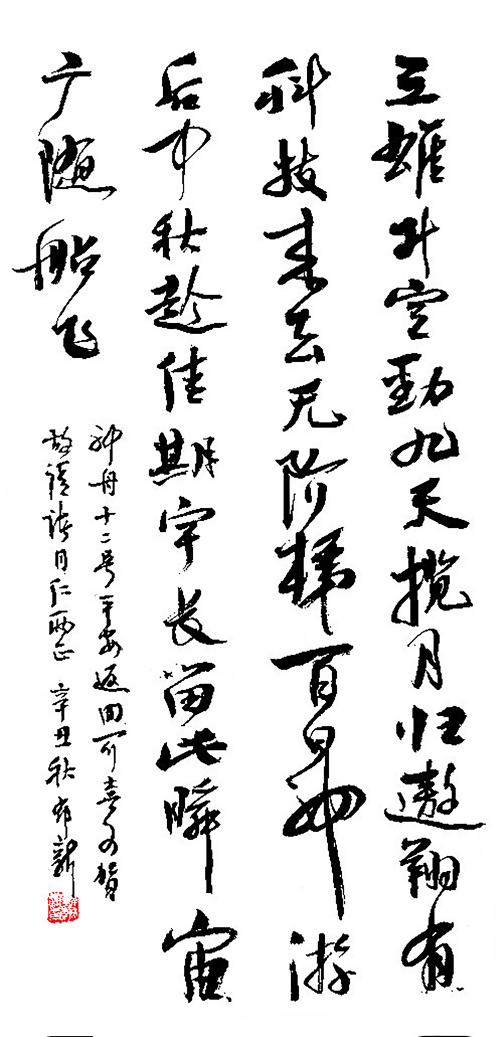 三雄升空劲九天揽月归遨翔有
科技来去无阶梯百日神游
后中秋趁佳期宇长留此瞬宙
广随船飞
神舟十二号平安返回可喜可贺
敬请诸同仁正 辛丑秋 新